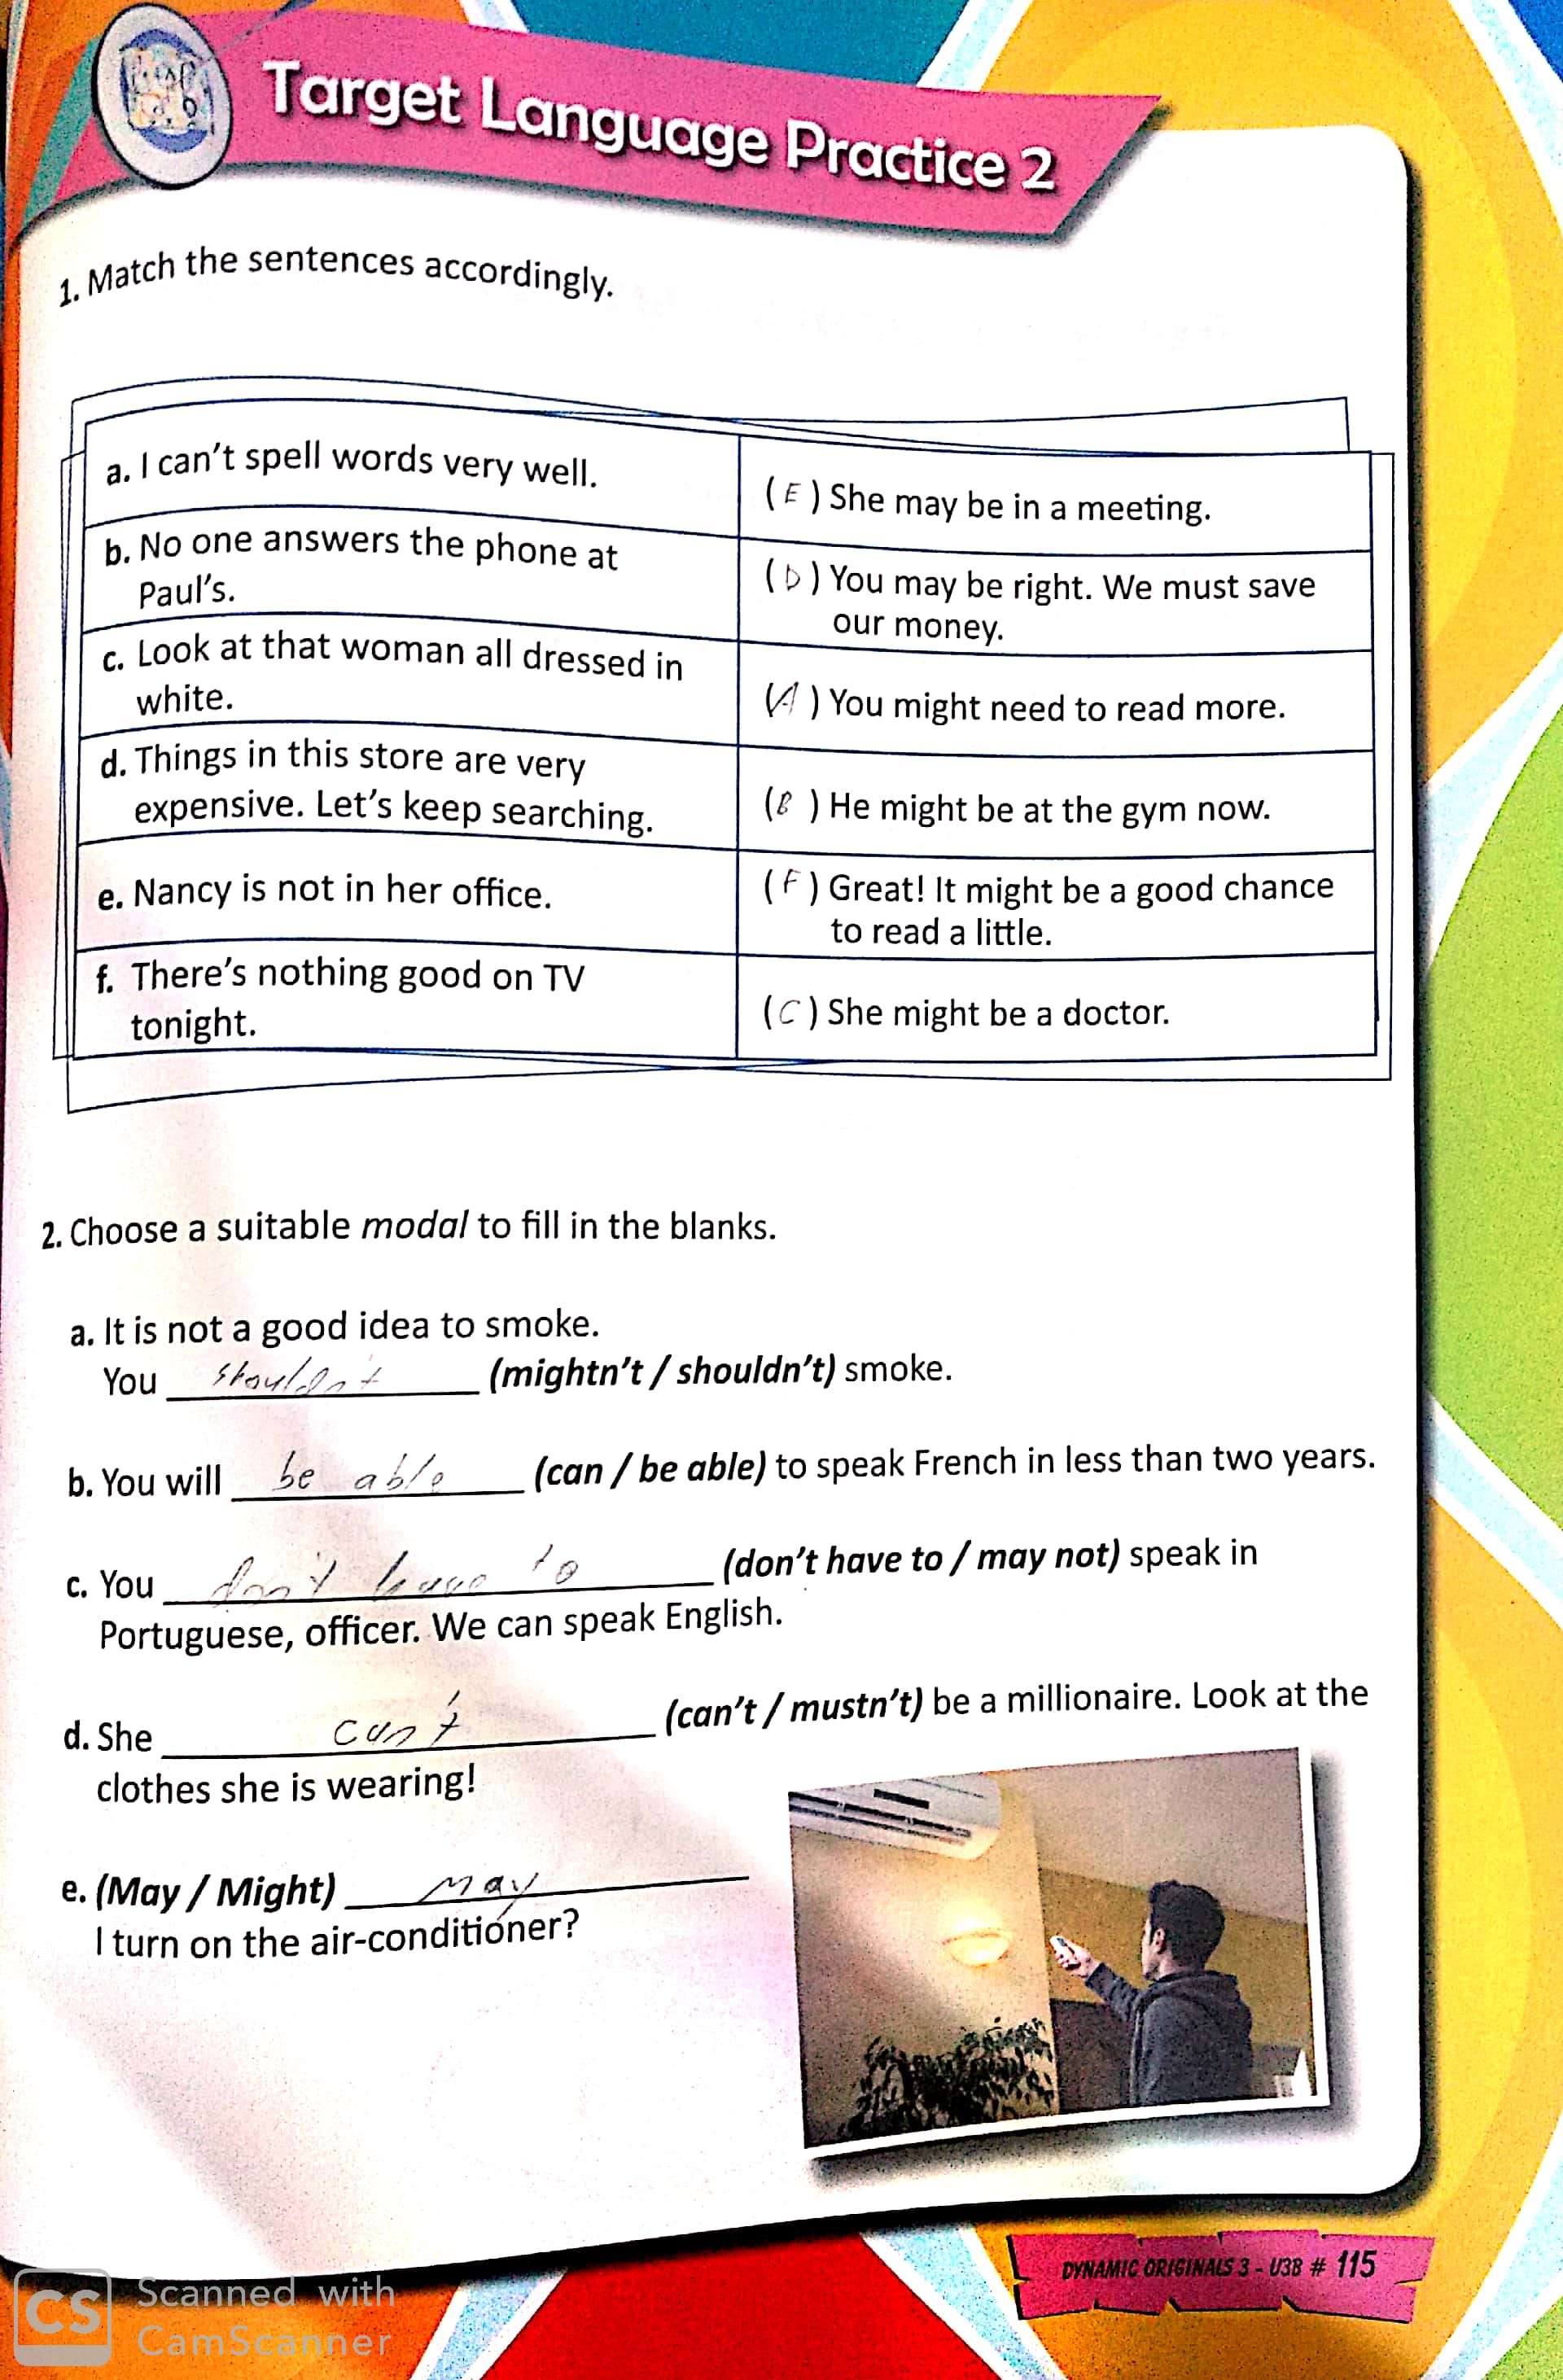 Target Language Practice 2
1. Match the sentences accordingly.
a. I can't spell words very well.
(E) She may be in a meeting.
b. No one answers the phone at
Paul's.
(D) You may be right. We must save
our money.
c. Look at that woman all dressed in
white.
(A) You might need to read more.
d. Things in this store are very
expensive. Let's keep searching.
(B) He might be at the gym now.
e. Nancy is not in her office.
(F) Great! It might be a good chance
to read a little.
f. There's nothing good on TV
tonight.
(C) She might be a doctor.
2. Choose a suitable modal to fill in the blanks.
a. It is not a good idea to smoke.
You shouldn't (mightn't / shouldn't) smoke.
b. You will be able (can / be able) to speak French in less than two years.
c. You don't have to (don't have to / may not) speak in
Portuguese, officer. We can speak English.
d. She can't (can't / mustn't) be a millionaire. Look at the
clothes she is wearing!
e. (May / Might) May
I turn on the air-conditioner?
DYNAMIC ORIGINALS 3 - U3B # 115
CS Scanned with
CamScanner